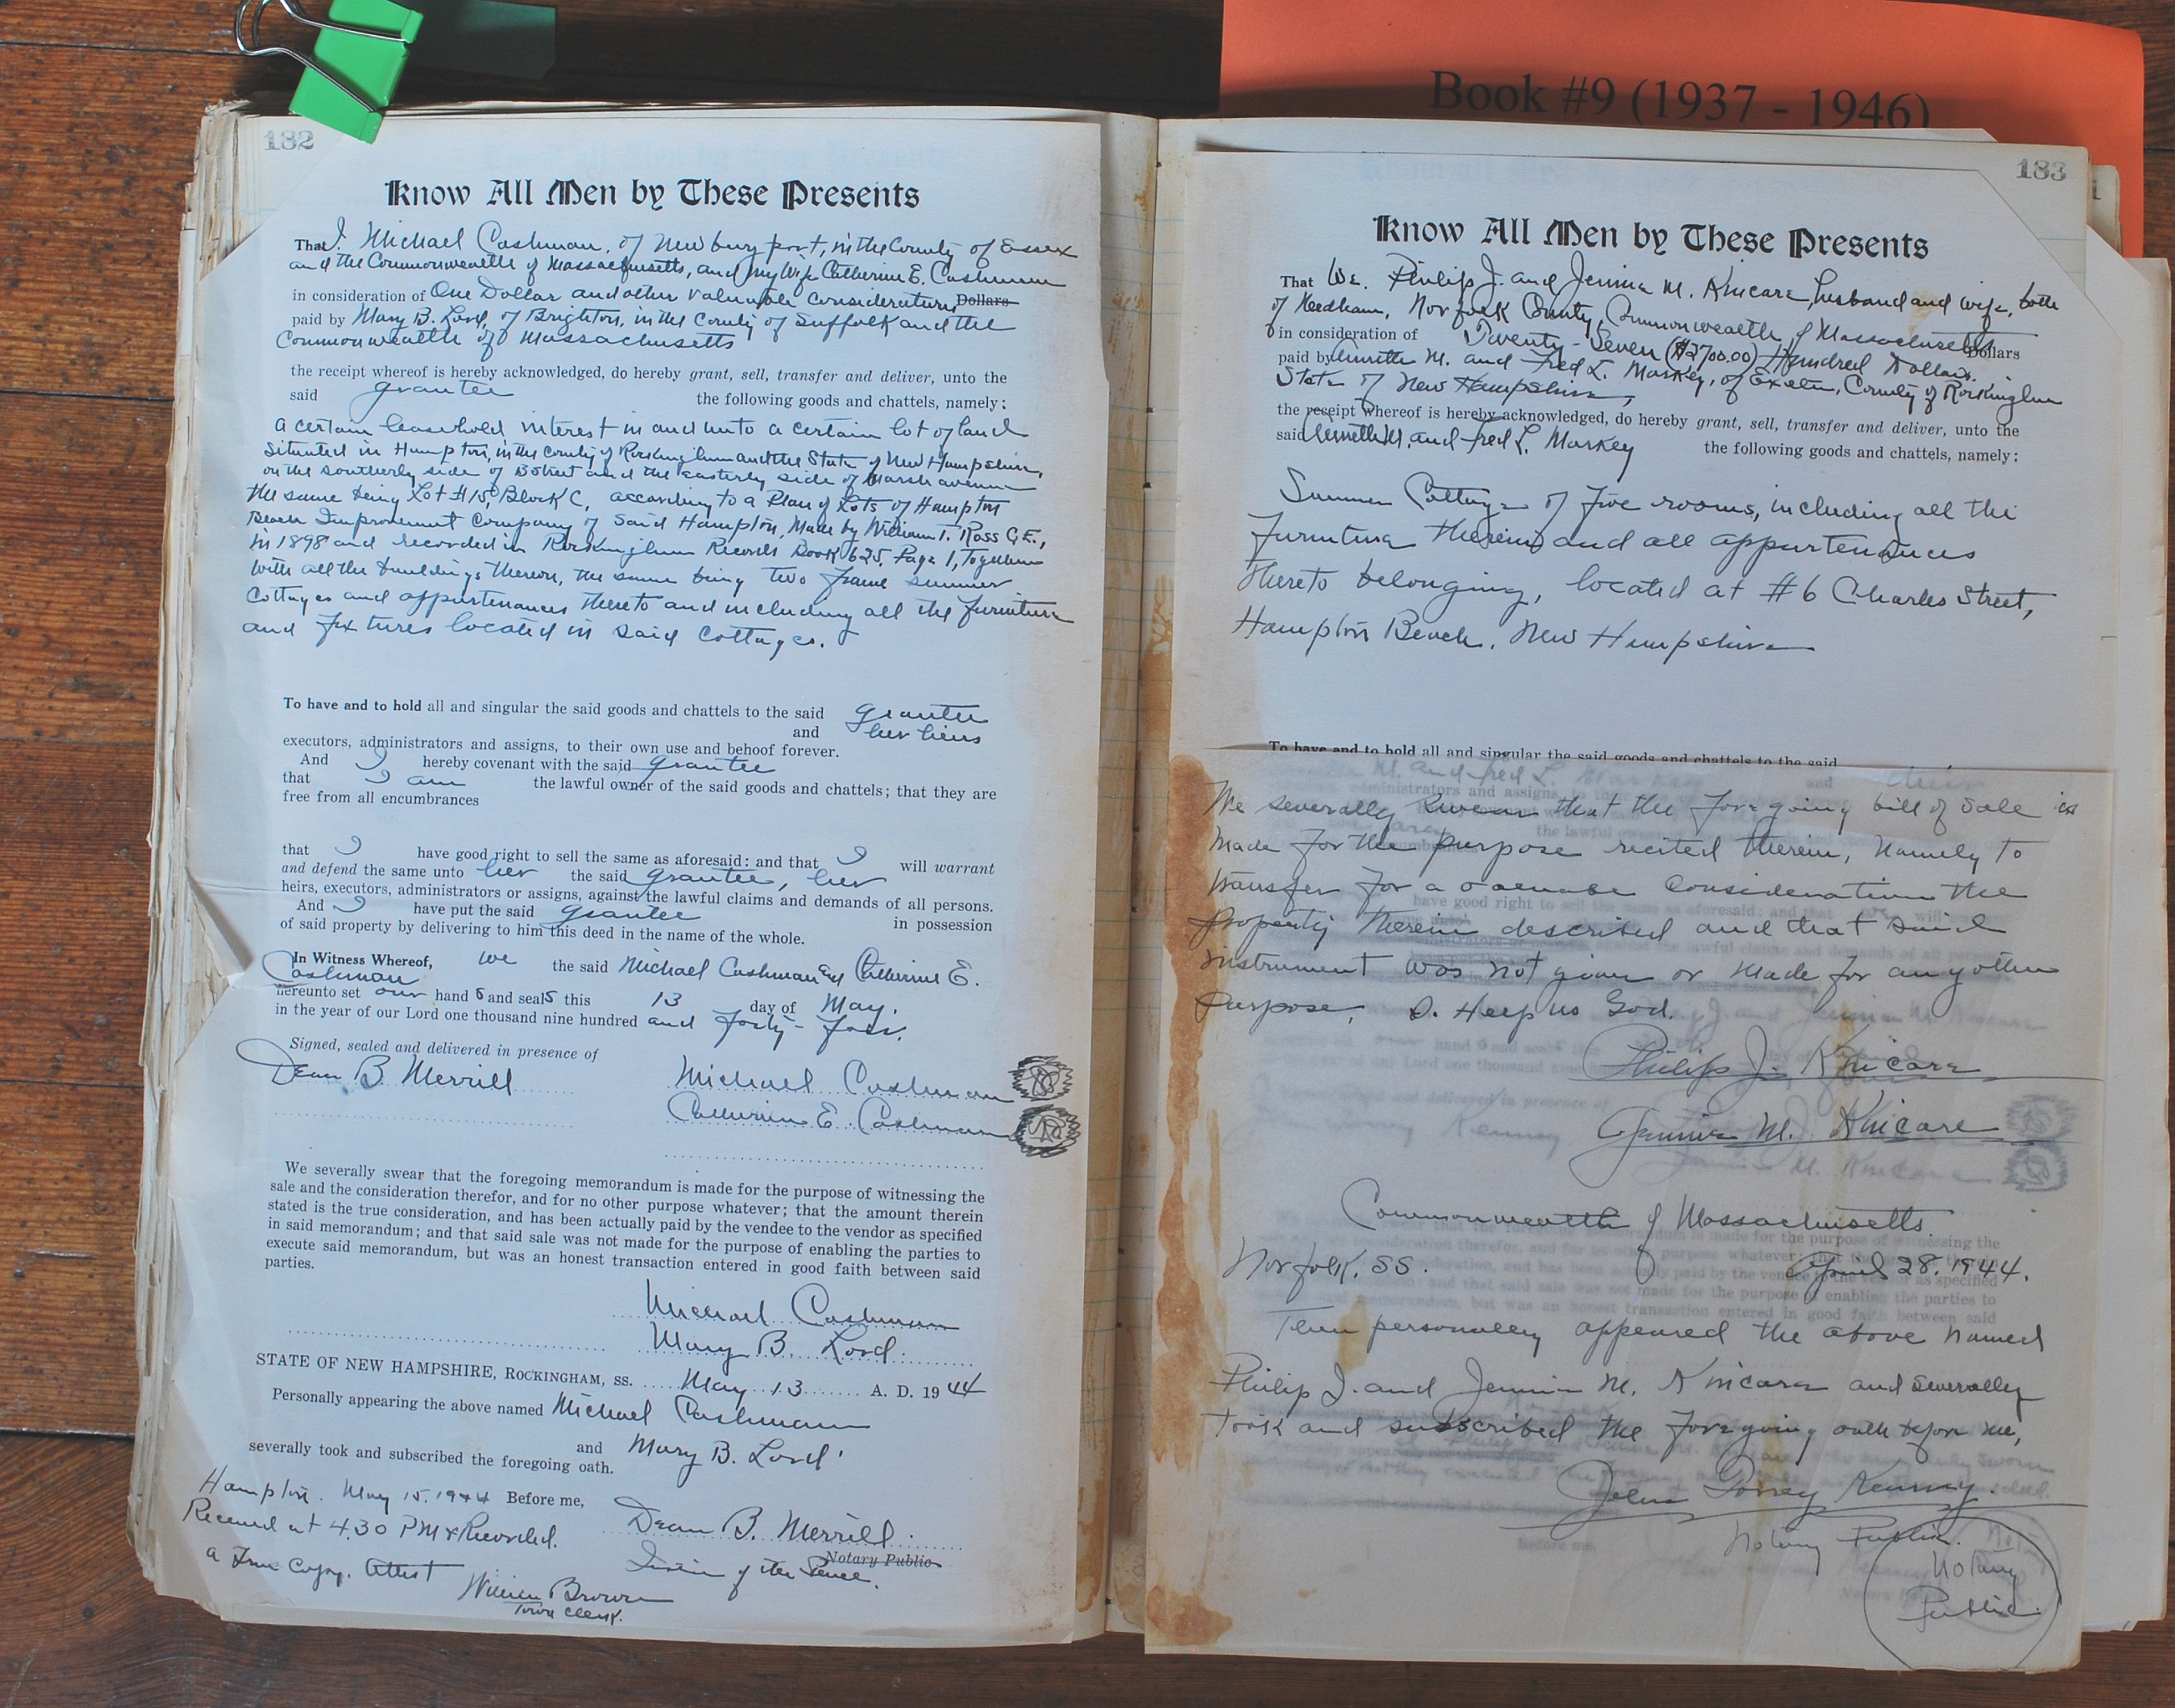 Book #9 (1937 - 1946)
182
Know All Men by These Presents
That I, Michael Cashman, of Newburyport, in the County of Essex
and the Commonwealth of Massachusetts, and my wife Catherine E. Cashman
in consideration of One Dollar and other valuable considerations Dollars
paid by Mary B. Lord, of Brighton, in the County of Suffolk and the
Commonwealth of Massachusetts
the receipt whereof is hereby acknowledged, do hereby grant, sell, transfer and deliver, unto the
said grantee the following goods and chattels, namely:
a certain leasehold interest in and unto a certain lot of land
situated in Hampton, in the County of Rockingham and the State of New Hampshire,
on the southerly side of B Street and the easterly side of Marsh avenue
the same being Lot #15, Block C, according to a Plan of Lots of Hampton
Beach Improvement Company of said Hampton, Made by William T. Ross C.E.,
in 1898 and recorded in Rockingham Records Book 625, Page 1, Together
with all the buildings thereon, the same being two frame summer
cottages and appurtenances thereto and including all the furniture
and fixtures located in said cottages.
To have and to hold all and singular the said goods and chattels to the said grantee
and her heirs
executors, administrators and assigns, to their own use and behoof forever.
And I hereby covenant with the said grantee
that I am the lawful owner of the said goods and chattels; that they are
free from all encumbrances
that I have good right to sell the same as aforesaid: and that I will warrant
and defend the same unto her the said grantee, her
heirs, executors, administrators or assigns, against the lawful claims and demands of all persons.
And I have put the said grantee in possession
of said property by delivering to him this deed in the name of the whole.
In Witness Whereof, we the said Michael Cashman and Catherine E.
Cashman
hereunto set our hand s and seals this 13 day of May.
in the year of our Lord one thousand nine hundred and forty-four.
Signed, sealed and delivered in presence of
Dean B. Merrill Michael Cashman
Catherine E. Cashman
We severally swear that the foregoing memorandum is made for the purpose of witnessing the
sale and the consideration therefor, and for no other purpose whatever; that the amount therein
stated is the true consideration, and has been actually paid by the vendee to the vendor as specified
in said memorandum; and that said sale was not made for the purpose of enabling the parties to
execute said memorandum, but was an honest transaction entered in good faith between said
parties.
Michael Cashman
Mary B. Lord.
STATE OF NEW HAMPSHIRE, ROCKINGHAM, SS. May 13 A. D. 1944
Personally appearing the above named Michael Cashman
and Mary B. Lord
severally took and subscribed the foregoing oath.
Hampton. May 15, 1944 Before me,
Received at 4.30 PM & Recorded. Dean B. Merrill.
Notary Public
a True Copy. Attest Justice of the Peace.
William Brown
Town Clerk.
183
Know All Men by These Presents
That We. Philip J. and Jennie M. Kincare, husband and wife, both
of Needham, Norfolk County, Commonwealth of Massachusetts
in consideration of Twenty-Seven ($2700.00) Hundred Dollars. Dollars
paid by M. and Fred L. Markey, of Exeter, County of Rockingham
State of New Hampshire,
the receipt whereof is hereby acknowledged, do hereby grant, sell, transfer and deliver, unto the
said M. and Fred L. Markey the following goods and chattels, namely:
Summer Cottage of five rooms, including all the
furniture therein and all appurtenances
thereto belonging, located at #6 Charles Street,
Hampton Beach, New Hampshire
To have and to hold all and singular the said goods and chattels to the said
We severally swear that the foregoing bill of sale is
made for the purpose recited therein, namely to
transfer for a consideration the
property therein described and that said
instrument was not given or made for any other
purpose, So Help us God.
Philip J. Kincare
Jennie M. Kincare
Commonwealth of Massachusetts
Norfolk, SS. April 28, 1944.
Then personally appeared the above named
Philip J. and Jennie M. Kincare and severally
took and subscribed the foregoing oath before me,
Notary Public.
Notary
Public